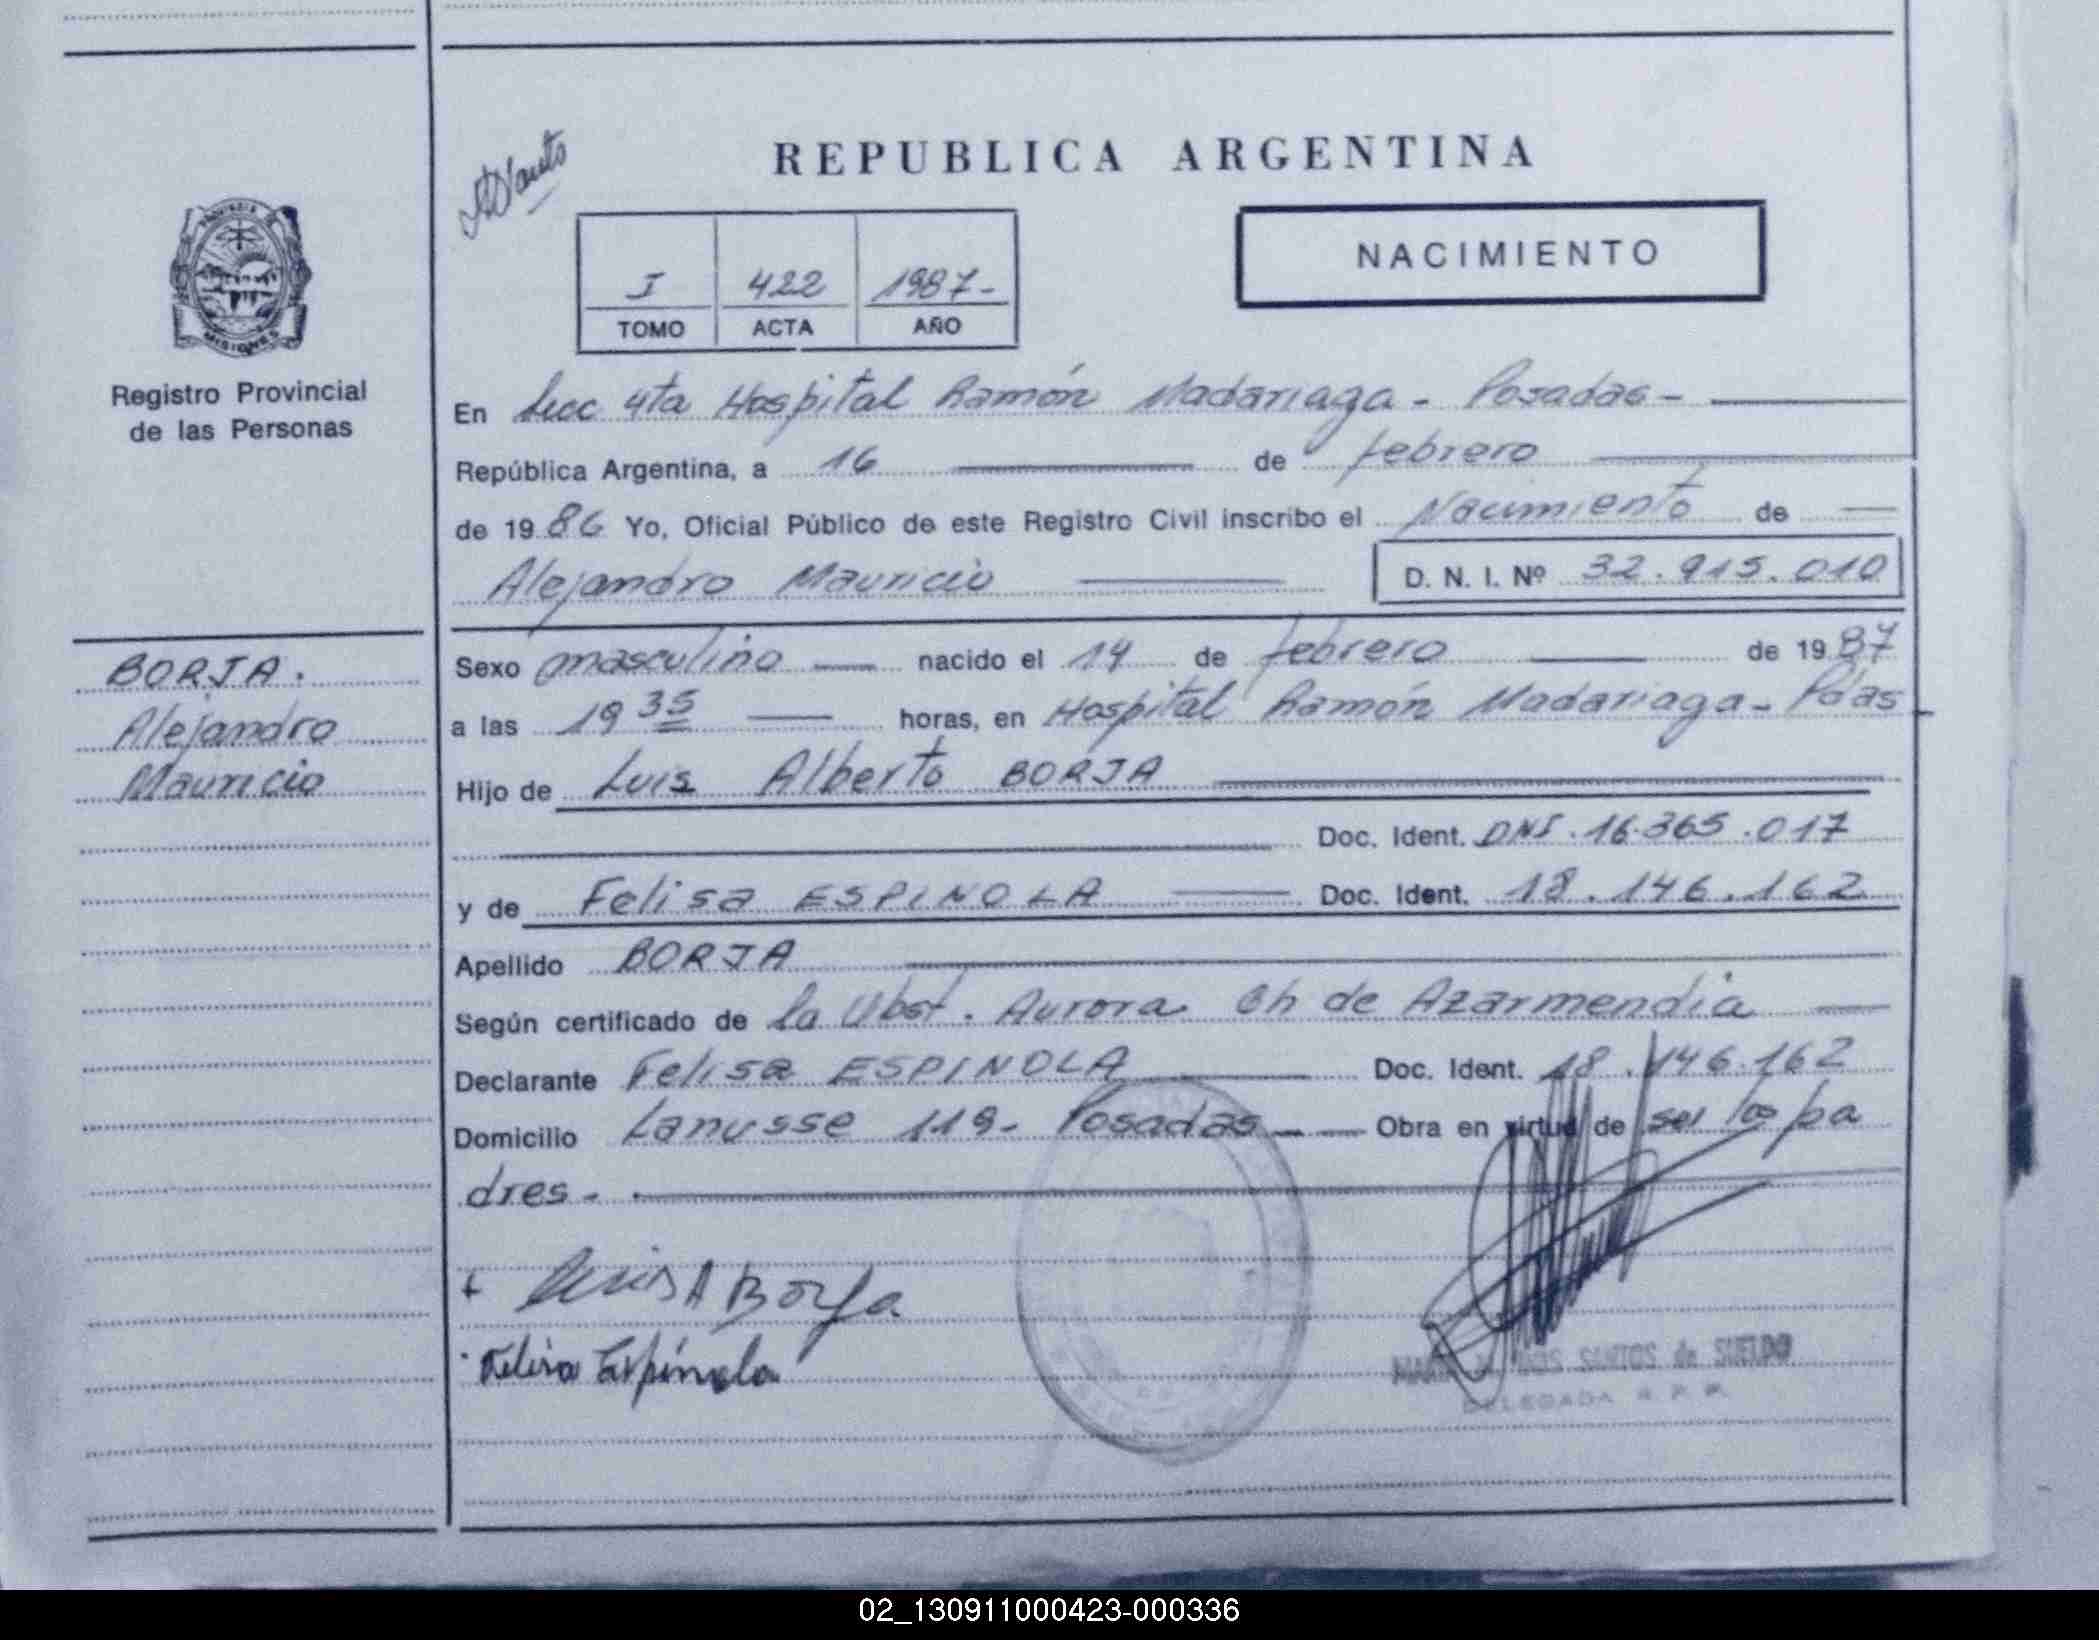 REPUBLICA ARGENTINA
NACIMIENTO
I 422 1987-
TOMO ACTA AÑO
PROVINCIA DE
MISIONES
Registro Provincial
de las Personas
BORJA.
Alejandro
Mauricio
En Secc 4ta Hospital Ramón Madariaga - Posadas -
República Argentina, a 16 de febrero
de 1986 Yo, Oficial Público de este Registro Civil inscribo el Nacimiento de
Alejandro Mauricio D. N. I. Nº 32.915.010
Sexo masculino nacido el 14 de febrero de 1987
a las 19 35 horas, en Hospital Ramón Madariaga - Pdas
Hijo de Luis Alberto BORJA
Doc. Ident. DNI. 16.365.017
y de Felisa ESPINOLA Doc. Ident. 18.146.162
Apellido BORJA
Según certificado de la Obst. Aurora Ch de Azarmendia
Declarante Felisa ESPINOLA Doc. Ident. 18.146.162
Domicilio Lanusse 119- Posadas - Obra en virtud de ser los pa
dres -
Luis A Borja
Felisa Espínola
SANTOS de SUELDO
DELEGADA R. P. P.
02_130911000423-000336